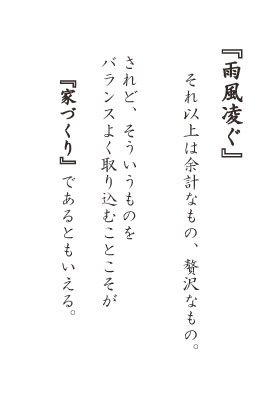 『雨風凌ぐ』
それ以上は余計なもの、贅沢なもの。
されど、そういうものを
バランスよく取り込むことこそが
『家づくり』であるともいえる。